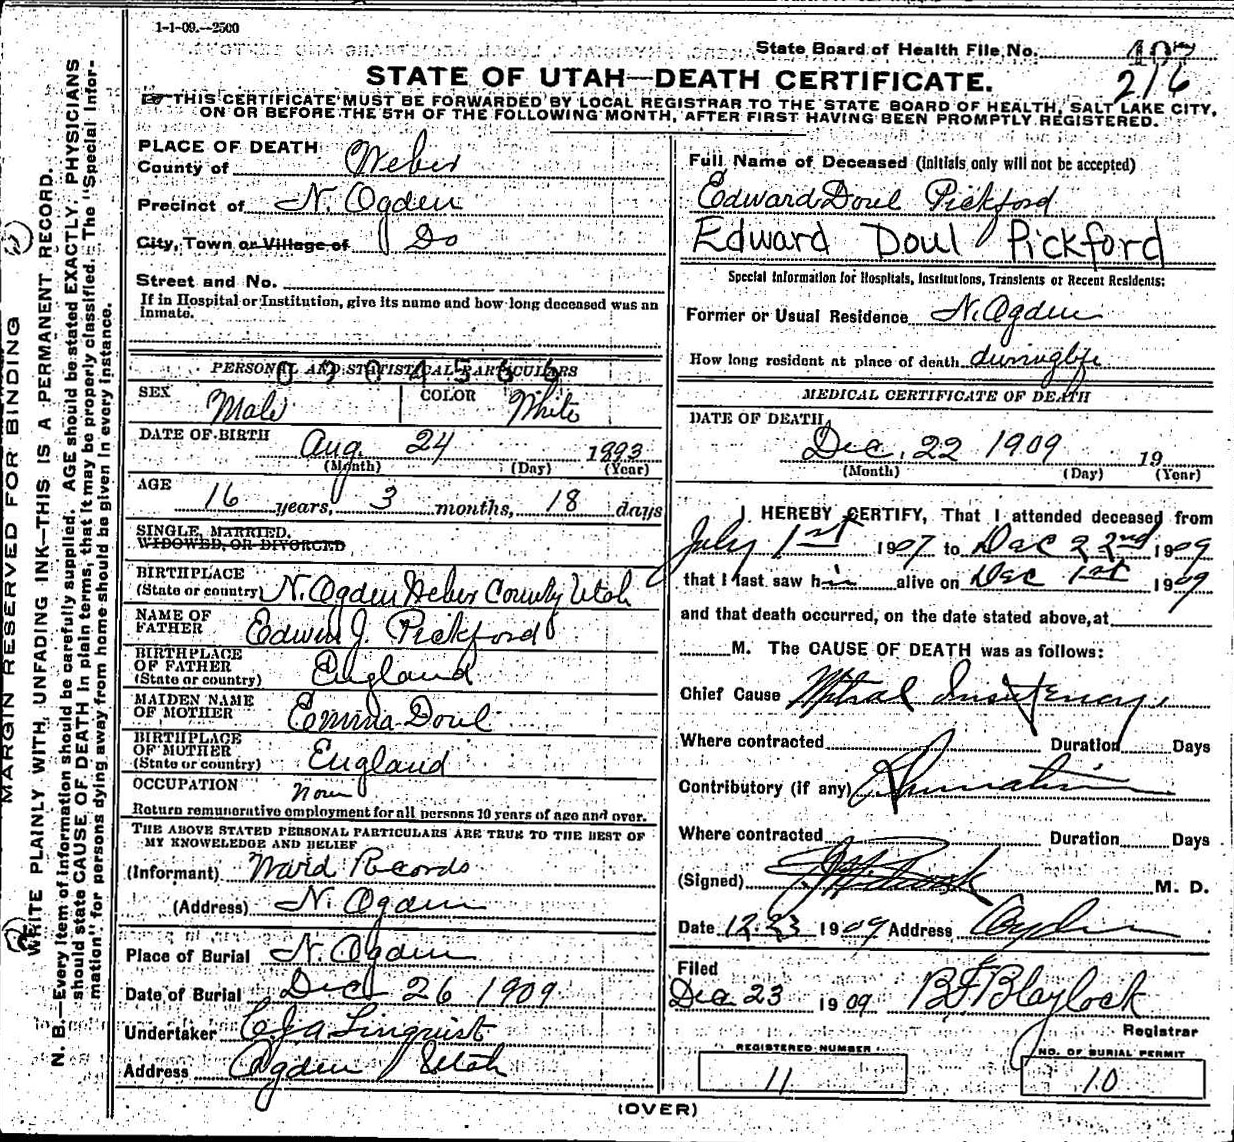 1-1-09.--2500
State Board of Health File No. 407
216
STATE OF UTAH—DEATH CERTIFICATE.
THIS CERTIFICATE MUST BE FORWARDED BY LOCAL REGISTRAR TO THE STATE BOARD OF HEALTH, SALT LAKE CITY,
ON OR BEFORE THE 5TH OF THE FOLLOWING MONTH, AFTER FIRST HAVING BEEN PROMPTLY REGISTERED.
MARGIN RESERVED FOR BINDING
WRITE PLAINLY WITH UNFADING INK—THIS IS A PERMANENT RECORD.
N. B.—Every item of information should be carefully supplied. AGE should be stated EXACTLY. PHYSICIANS
should state CAUSE OF DEATH in plain terms, that it may be properly classified. The "Special Infor-
mation" for persons dying away from home should be given in every instance.
PLACE OF DEATH
County of Weber
Precinct of N. Ogden
City, Town or Village of Do
Street and No.
If in Hospital or Institution, give its name and how long deceased was an
Inmate.
PERSONAL AND STATISTICAL PARTICULARS
0904566
SEX Male COLOR White
DATE OF BIRTH Aug. 24 1893
(Month) (Day) (Year)
AGE 16 years, 3 months, 18 days
SINGLE, MARRIED,
WIDOWED, OR DIVORCED
BIRTHPLACE
(State or country) N. Ogden Weber County Utah
NAME OF
FATHER Edwin J. Pickford
BIRTHPLACE
OF FATHER
(State or country) England
MAIDEN NAME
OF MOTHER Emma Doul
BIRTHPLACE
OF MOTHER
(State or country) England
OCCUPATION None
Return remunerative employment for all persons 10 years of age and over.
THE ABOVE STATED PERSONAL PARTICULARS ARE TRUE TO THE BEST OF
MY KNOWLEDGE AND BELIEF
(Informant) Ward Records
(Address) N. Ogden
Place of Burial N. Ogden
Date of Burial Dec 26 1909
Undertaker Linquist
Address Ogden Utah
Full Name of Deceased (initials only will not be accepted)
Edward Doul Pickford
Edward Doul Pickford
Special Information for Hospitals, Institutions, Transients or Recent Residents:
Former or Usual Residence N. Ogden
How long resident at place of death during life
MEDICAL CERTIFICATE OF DEATH
DATE OF DEATH
Dec. 22 1909 19
(Month) (Day) (Year)
I HEREBY CERTIFY, That I attended deceased from
July 1st 1907 to Dec 22nd 1909
that I last saw him alive on Dec 1st 1909
and that death occurred, on the date stated above, at
M. The CAUSE OF DEATH was as follows:
Chief Cause Mitral
Where contracted Duration Days
Contributory (if any) Rhumatism
Where contracted Duration Days
(Signed) M. D.
Date 12-23 1909 Address Ogden
Filed
Dec 23 1909 B F Blaylock
Registrar
REGISTERED NUMBER
11
NO. OF BURIAL PERMIT
10
(OVER)